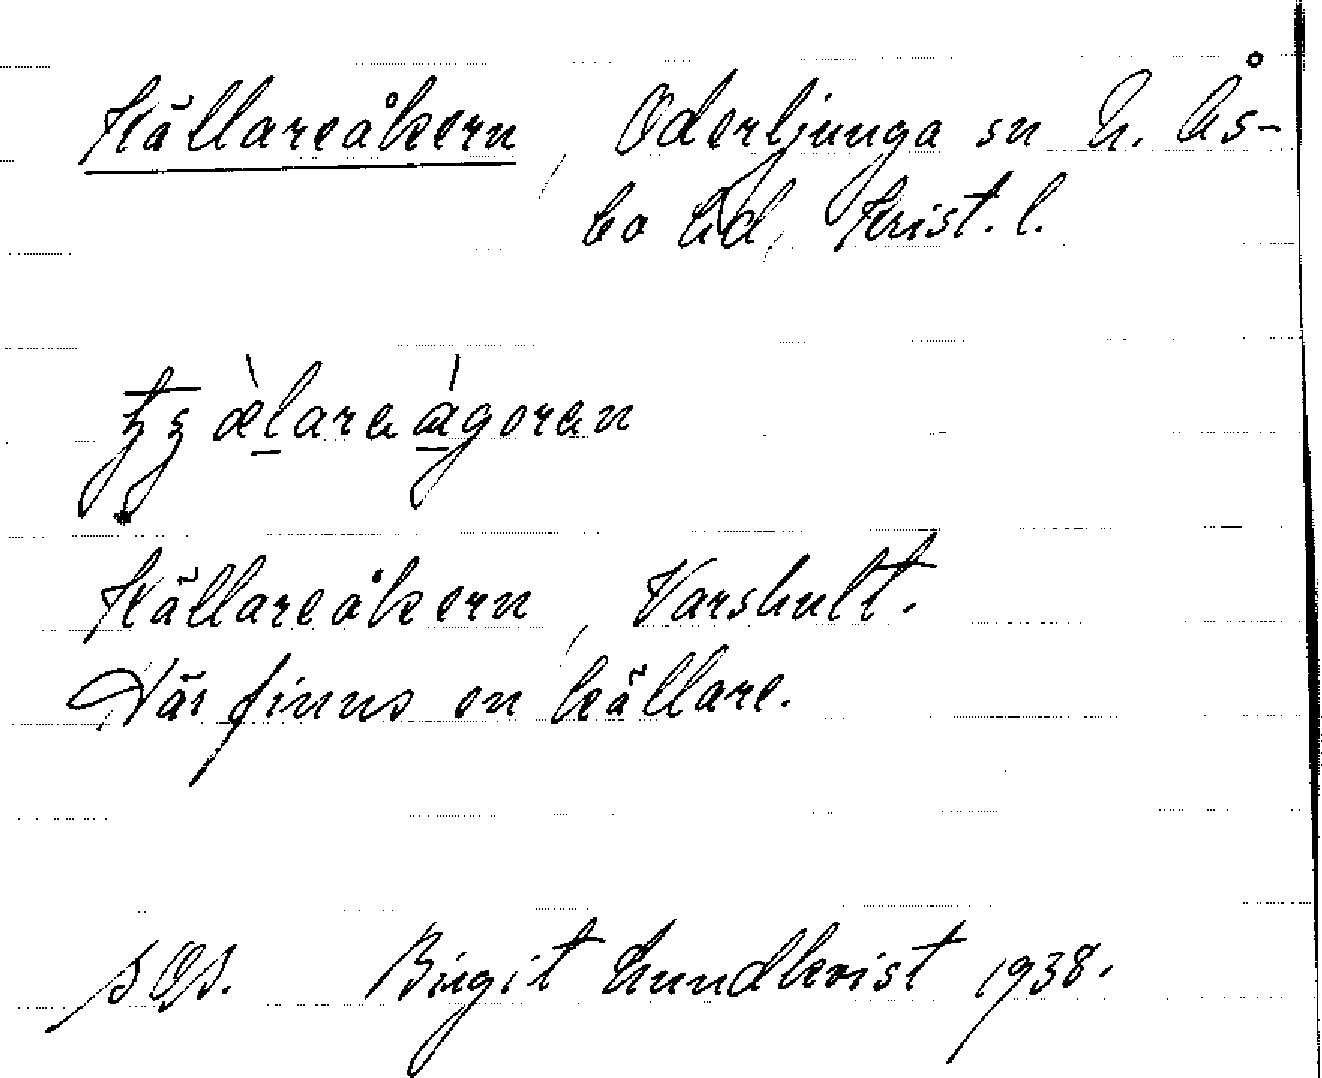 Källareåkern, Oderljunga sn N. Ås-
bo hd, Krist. l.
Källareåkern, Varshult.
Där finns en källare.
Birgit Lundkvist 1938.